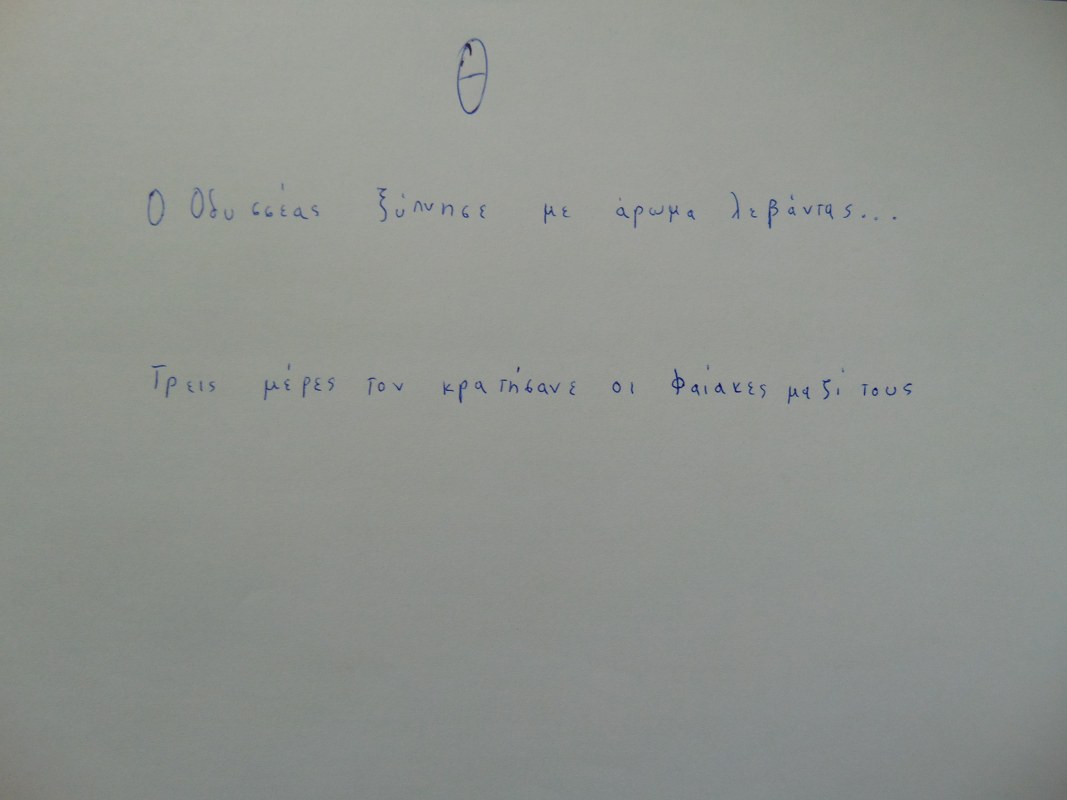 Θ
Ο Οδυσσέας ξύπνησε με άρωμα λεβάντας...
Τρεις μέρες τον κρατήσανε οι Φαίακες μαζί τους